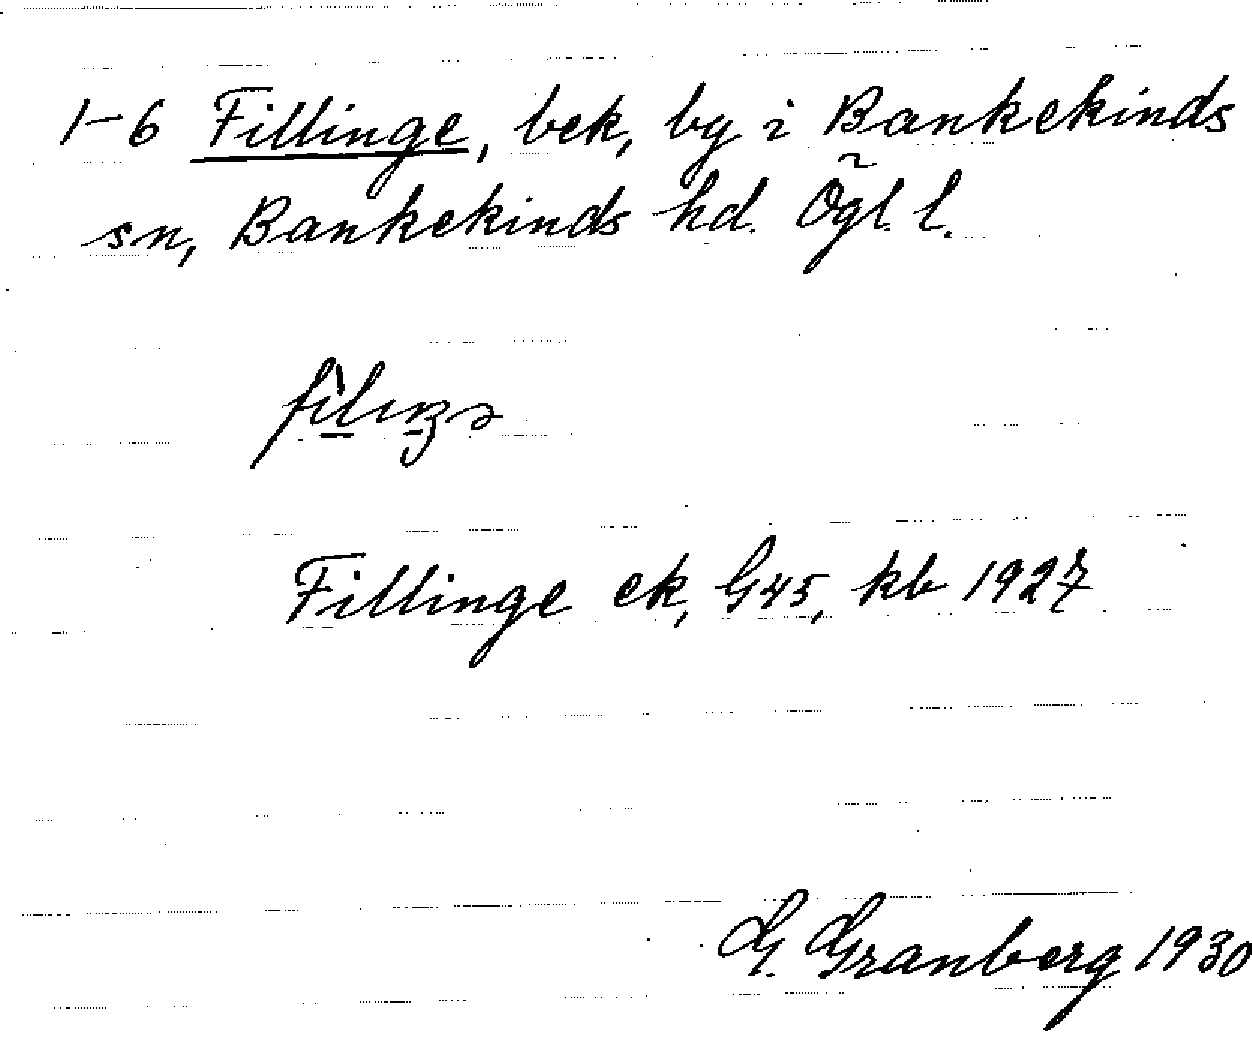 1-6 Fillinge, bek, by i Bankekinds
sn, Bankekinds hd. Ögl. l.
Fillinge ek, G45, kb 1927
G. Granberg 1930